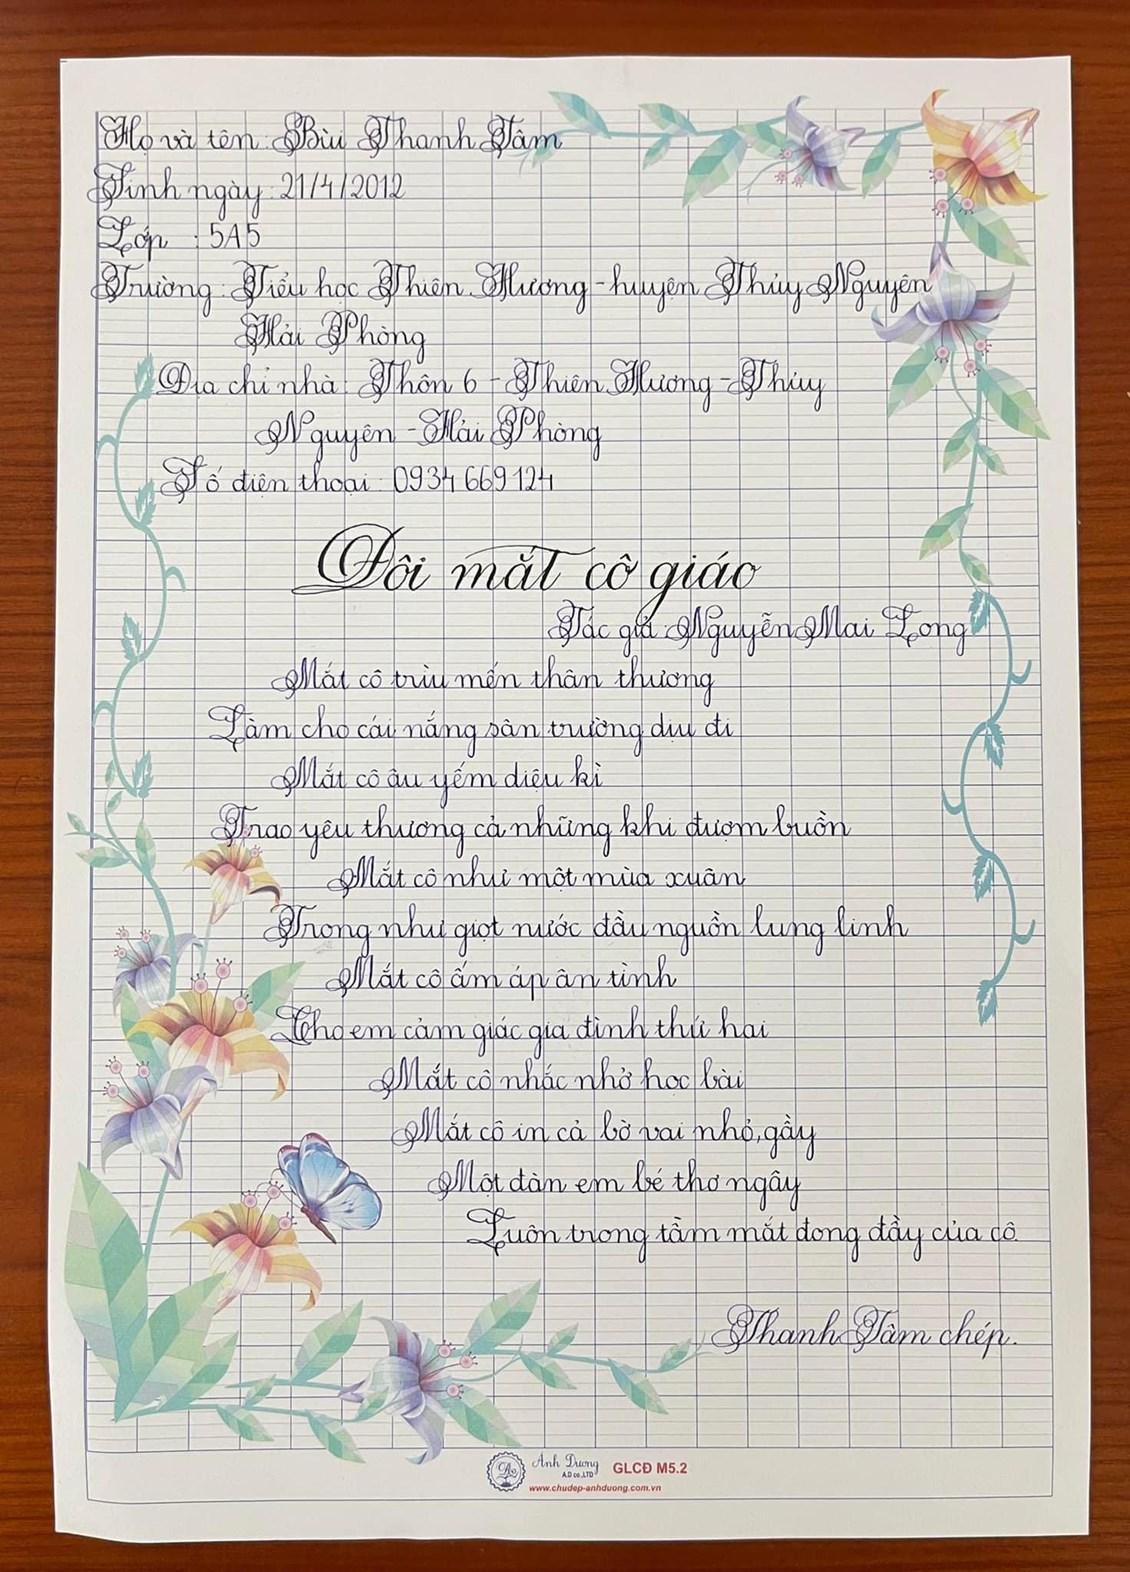 Họ và tên: Bùi Thanh Tâm
Sinh ngày: 21/4/2012
Lớp : 5A5
Trường: Tiểu học Thiên Hương - huyện Thủy Nguyên
Hải Phòng
Địa chỉ nhà: Thôn 6 - Thiên Hương - Thủy
Nguyên - Hải Phòng
Số điện thoại: 0934669124
Đôi mắt cô giáo
Tác giả: Nguyễn Mai Long
Mắt cô trìu mến thân thương
Làm cho cái nắng sân trường dịu đi
Mắt cô âu yếm diệu kì
Trao yêu thương cả những khi đượm buồn
Mắt cô như một mùa xuân
Trong như giọt nước đầu nguồn lung linh
Mắt cô ấm áp ân tình
Cho em cảm giác gia đình thứ hai
Mắt cô nhắc nhở học bài
Mắt cô in cả bờ vai nhỏ, gầy
Một đàn em bé thơ ngây
Luôn trong tầm mắt đong đầy của cô.
Thanh Tâm chép.
Ánh Dương GLCĐ M5.2
A.D co.,LTD
www.chudep-anhduong.com.vn